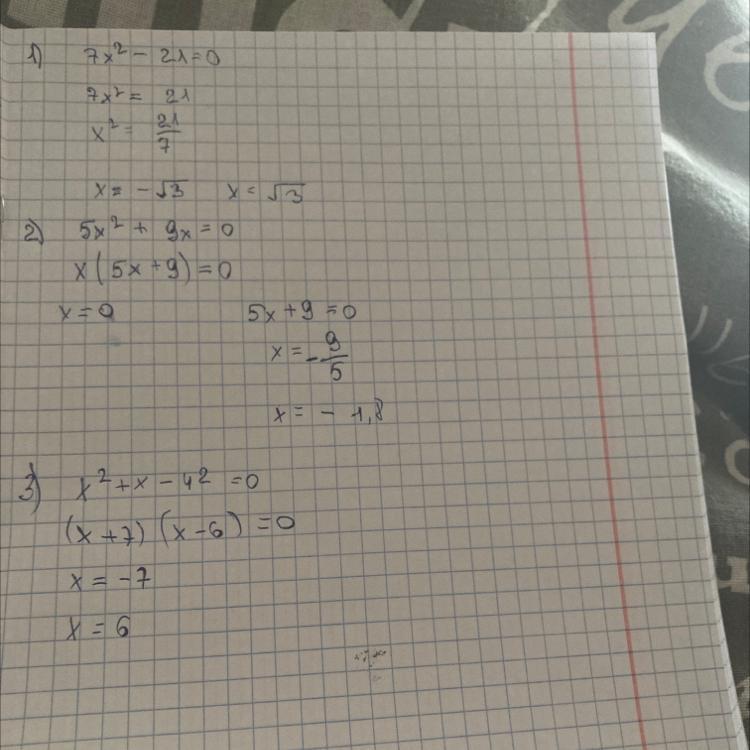 1) 7x² - 21 = 0
7x² = 21
x² = 21/7
x = -√3 x = √3
2) 5x² + 9x = 0
x(5x+9) = 0
x = 0 5x+9=0
x = -9/5
x = -1,8
3) x² + x - 42 = 0
(x+7)(x-6) = 0
x = -7
x = 6